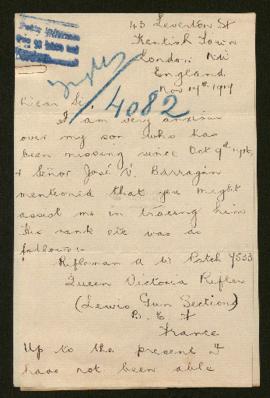 43 Leverton St
Kentish Town
London NW
England
Nov 14th 1917
4082
Dear Sir
I am very anxious
over my son who has
been missing since Oct 9th
& Señor José V. Barragán
mentioned that you might
assist me in tracing him
his rank etc was as
follows:
Rifleman A W
Queen Victoria Rifles
(Lewis Gun Section)
B. E. F
France
Up to the present I
have not been able